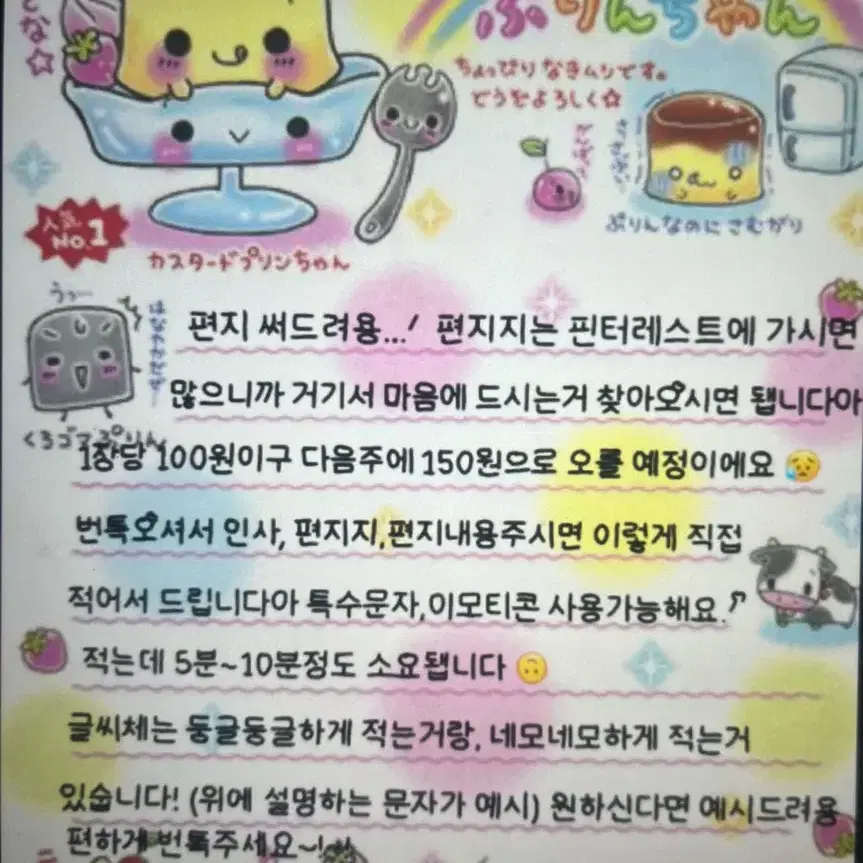 な☆
ぷりんちゃん
ちょっぴりなきムシです。
どうぞよろしく☆
ぷりんなのにさむがり
人気
No.1
カスタードプリンちゃん
うっ
くろゴマぷりん
편지 써드려용...ᐟ 편지지는 핀터레스트에 가시면
많으니까 거기서 마음에 드시는거 찾아오시면 됍니다아
1장당 100원이구 다음주에 150원으로 오를 예정이에요 😥
번톡오셔서 인사, 편지지,편지내용주시면 이렇게 직접
적어서 드립니다아 특수문자,이모티콘 사용가능해요.ᐟ
적는데 5분~10분정도 소요됍니다 🙃
글씨체는 둥글둥글하게 적는거랑, 네모네모하게 적는거
있숩니다! (위에 설명하는 문자가 예시) 원하신다면 예시드려용
편하게 번톡주세요~!